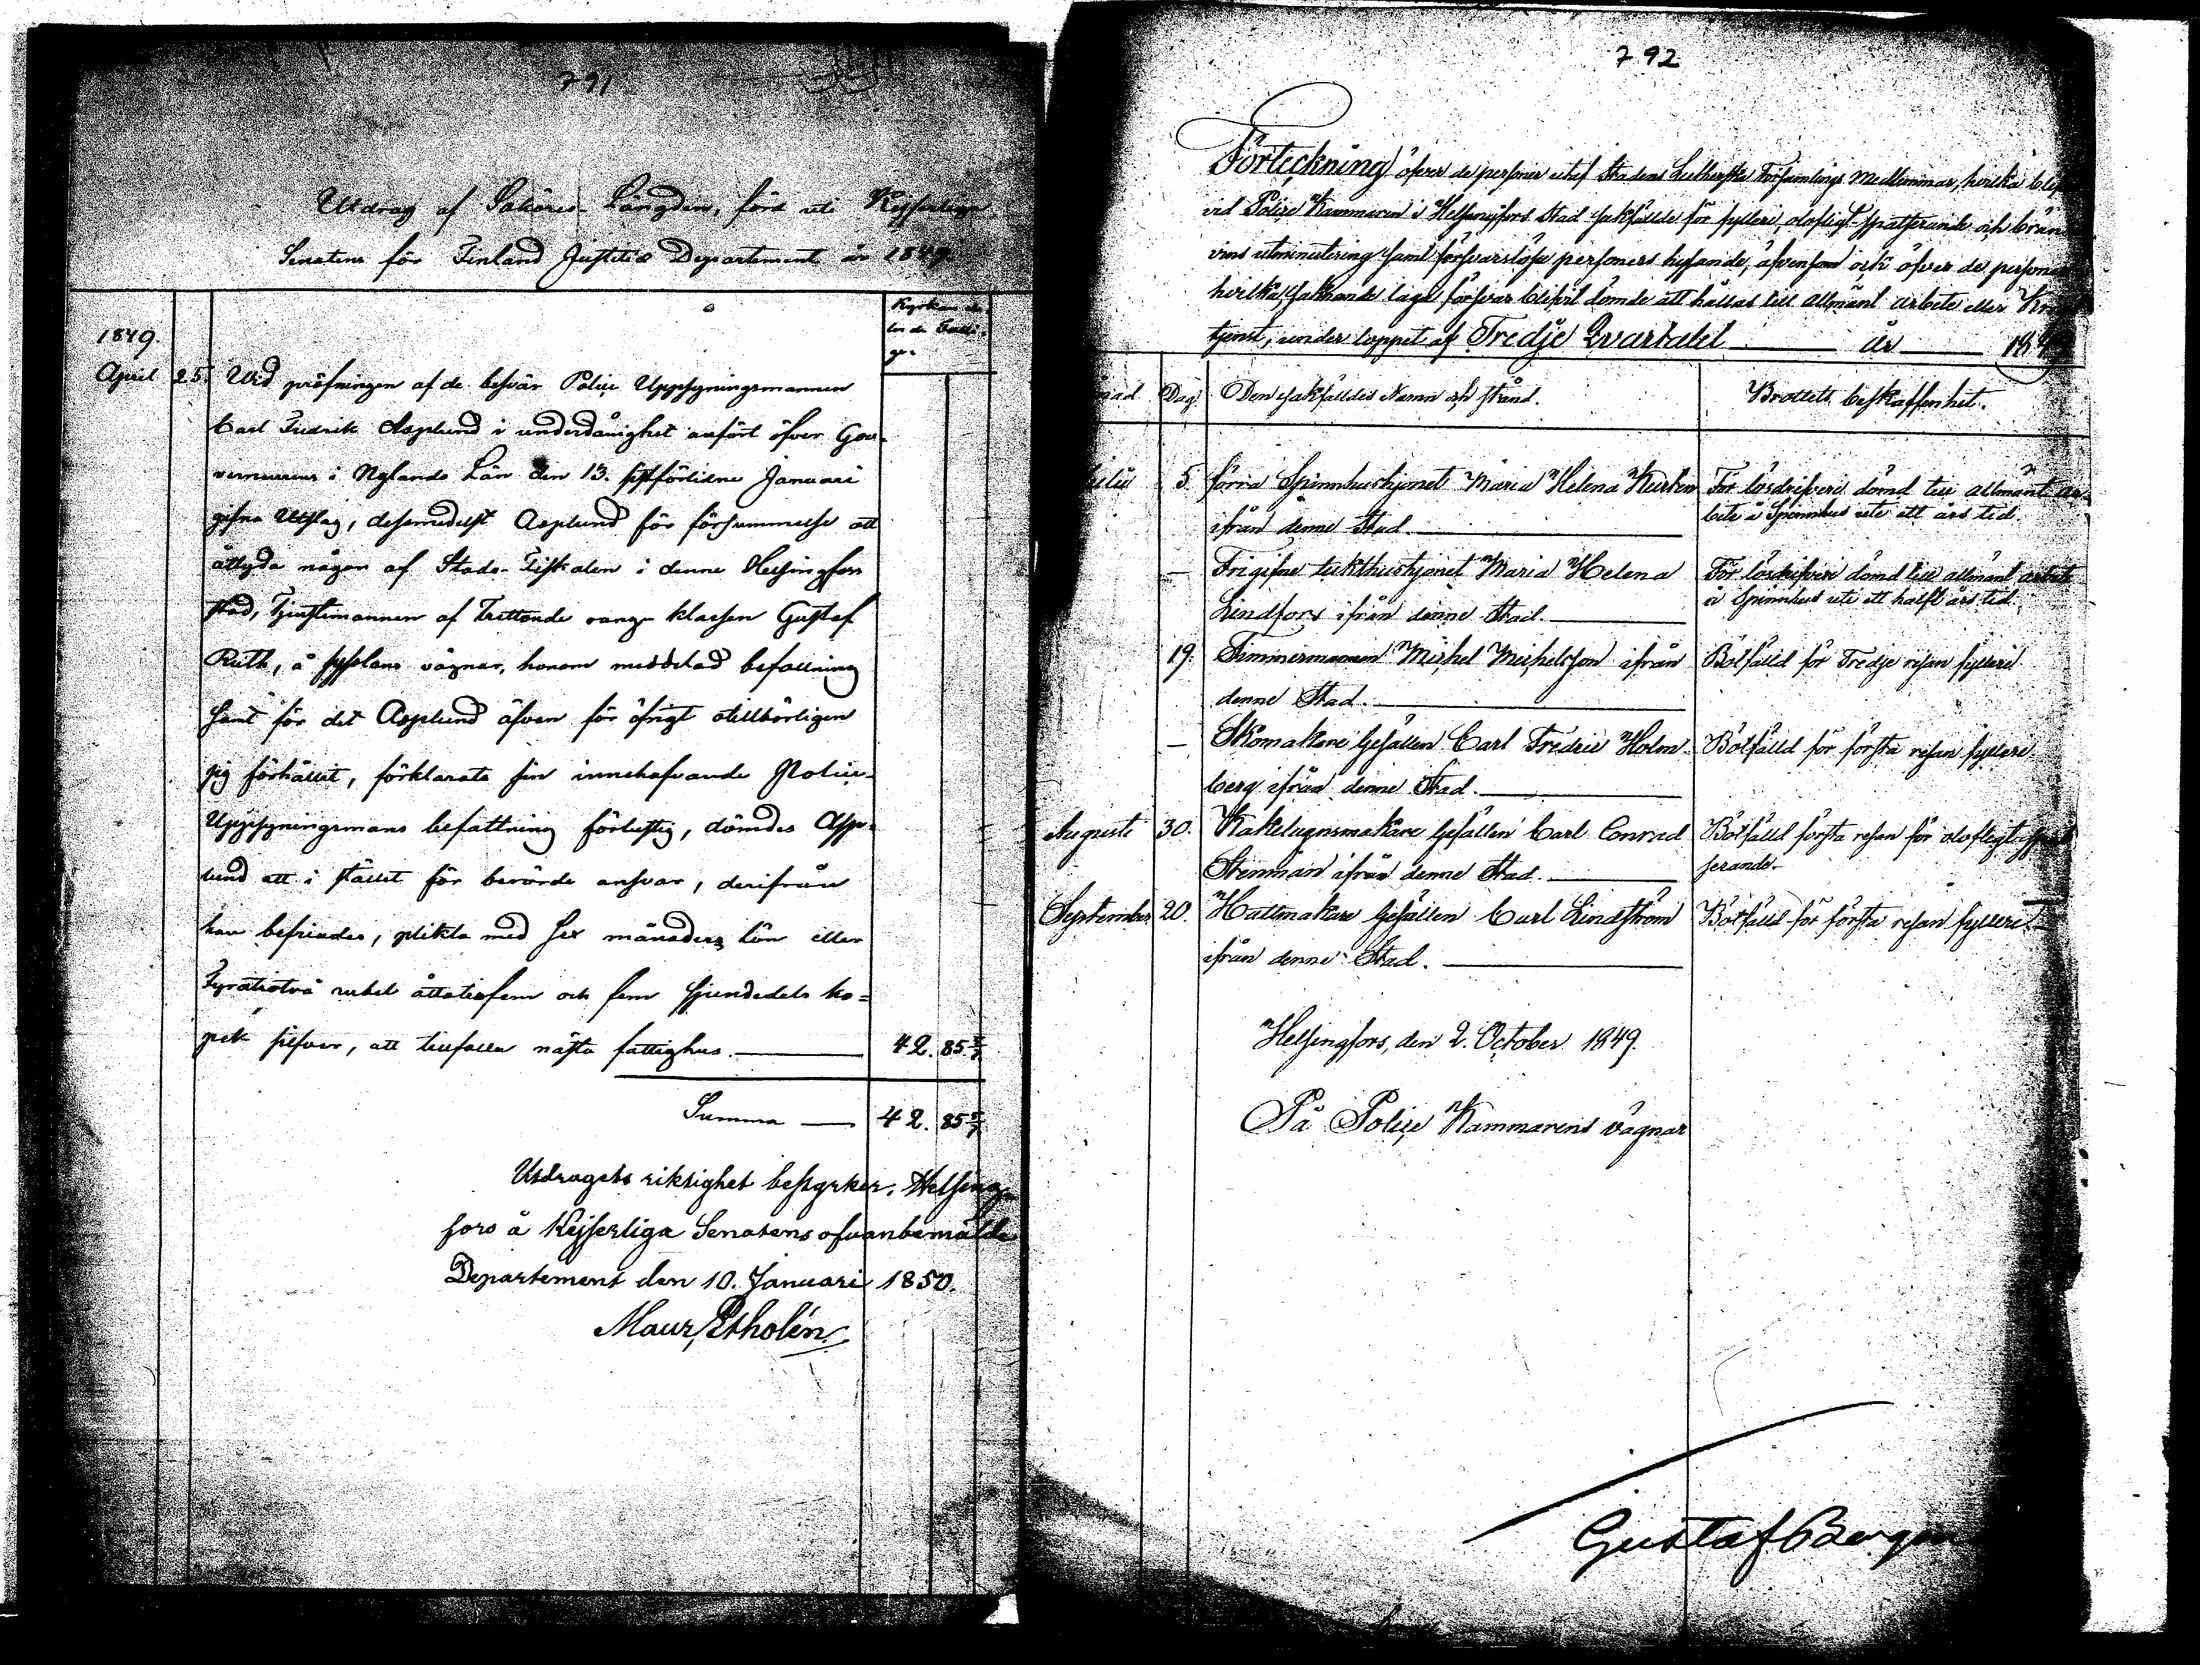 791
Utdrag af Saköres-Längden, förd uti Kejserliga
Senatens för Finland Justitiæ Departement år 1849.
Kyrkan el-
ler de Fatti-
ga.
1849.
April 25. Vid pröfningen af de besvär Police Uppsyningsmannen
Carl Fredrik Asplund i underdånighet anfört öfver Gou-
verneurens i Nylands Län den 13. sistförlidne Januari
gifna Utslag, dessmedelst Asplund för försummelse att
åtlyda någon af Stads-Fiskalen i denne Helsingfors
stad, Tjenstemannen af Trettonde rangs klassen Gustaf
Ruth, å sysslans vägnar, honom meddelad befallning
samt för det Asplund äfven för öfrigt otillbörligen
sig förhållit, förklarats sin innehafvande Police-
Uppsyningsmans befattning förlustig, dömdes Asp-
lund att i stället för berörde ansvar, derifrån
han befriades, plikta med sex månaders lön eller
Fyratiotvå rubel åttatiofem och fem sjundedels ko-
pek silfver, att tillfalla nästa fattighus. 42. 85 5/7
Summa 42. 85 5/7
Utdragets riktighet bestyrker. Helsing-
fors å Kejserliga Senatens ofvanbemälde
Departement den 10. Januari 1850.
Maur. Etholén
792
Förteckning öfver de personer utaf Stadens Lutherska Församlings Medlemmar, hvilka blif
vid Police Kammaren i Helsingfors Stad sakfällde för fylleri, olofligt spatserande och brän
vins utminutering samt försvarslösa personers hysande, äfvensom ock öfver de personer
hvilka, saknande laga försvar blifvit dömde att hållas till allmänt arbete eller Kr
tjenst, under loppet af Tredje Qvartalet år 184
nad Dag. Den sakfälldes Namn och stånd. Brottets beskaffenhet.
Julii 5. förra Spinnhushjonet Maria Helena Kurken För lösdrifveri dömd till allmänt ar-
ifrån denne Stad. bete å Spinnhus uti ett års tid.
— Frigifne tukthushjonet Maria Helena För lösdrifveri dömd till allmänt arbete
Lindfors ifrån denne Stad. å Spinnhus uti ett halft års tid.
19. Timmermannen Michel Michelsson ifrån Bötfälld för Tredje resan fylleri
denne Stad.
— Skomakare Gesällen Carl Fredric Holm- Bötfälld för första resan fylleri
berg ifrån denne Stad.
Augusti 30. Kakelugnsmakare Gesällen Carl Conrad Bötfälld första resan för olofligt spat
Stenman ifrån denne Stad. serande.
September 20. Hattmakare Gesällen Carl Lindström Bötfälld för första resan fylleri
ifrån denne Stad.
Helsingfors, den 2. October 1849.
På Police Kammarens vägnar
Gustaf Bergm